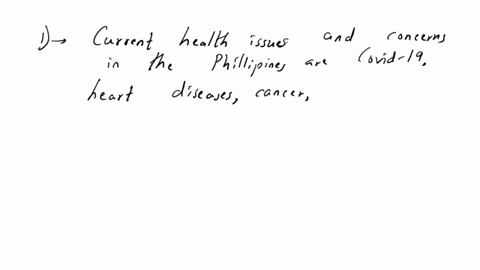 1)→ Current health issues and concerns
in the Phillipines are Covid-19.
heart diseases, cancer,